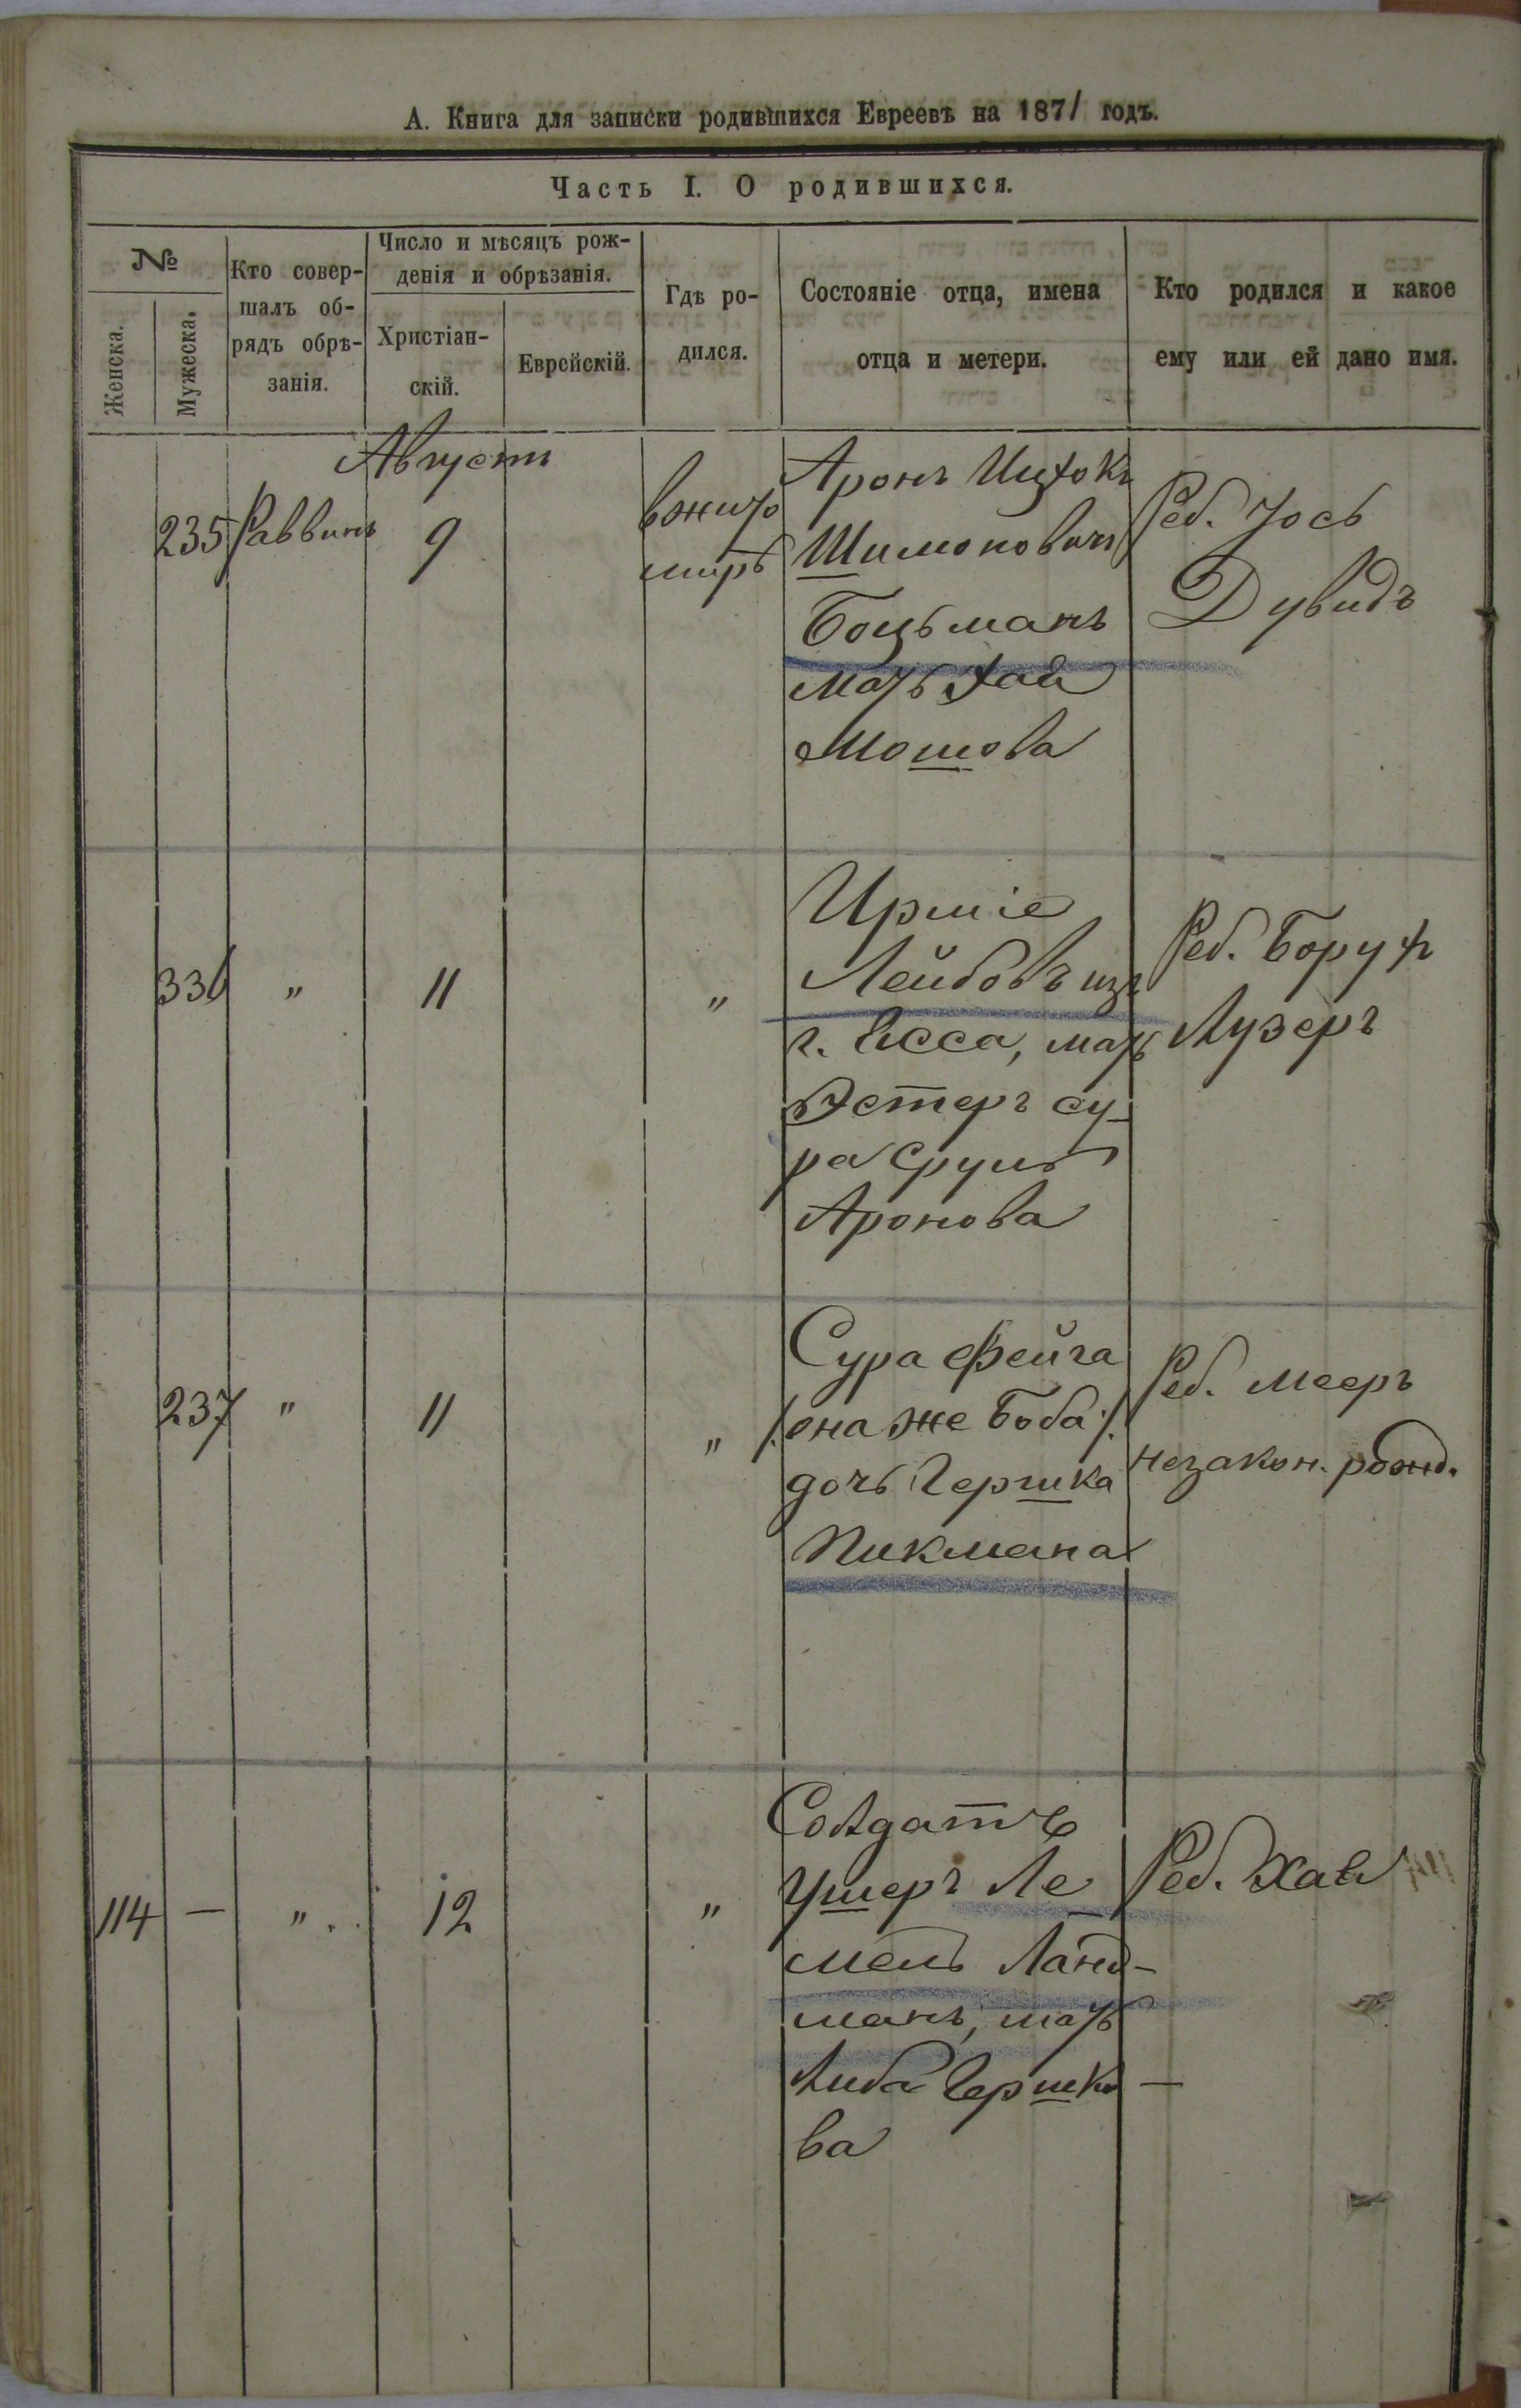 А. Книга для записки родившихся Евреевъ на 1871 годъ.
Часть I. О родившихся.
№
Женска.
Мужеска.
Кто совер-
шалъ об-
рядъ обрѣ-
занія.
Число и мѣсяцъ рож-
денія и обрѣзанія.
Христіан-
скій.
Еврейскій.
Гдѣ ро-
дился.
Состояніе отца, имена
отца и метери.
Кто родился и какое
ему или ей дано имя.
Августъ
235 Раввинъ 9
в жито
мирѣ
Аронъ Ицхокъ
Шимоновичъ
Боцьманъ
мать Хая
Мошова
Реб. Іось
Дувидъ
336 " 11 "
Ирміе
Лейбовъ изъ
г. Ясса, мать
Эстеръ су-
ра Сруль
Аронова
Реб. Борухъ
Лузеръ
237 " 11 "
Сура Фейга
/: она же Боба :/
дочь Гершка
Пикмана
Реб. Мееръ
незакон. рожд.
114 — " 12 "
Солдатъ
Ушеръ Ле
мель Ланд-
манъ, мать
Либа Гершко
ва
Реб. Хая
—